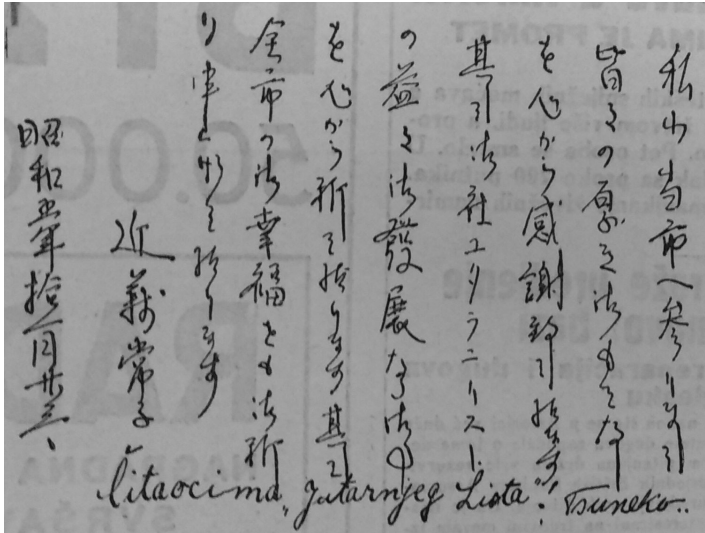 私が当市へ参りまして
皆々の厚き御もてなし
を心から感謝致して居ります
其して御社ユタラニーリスト
の益々御發展なる御
を心から祈って居ります其して
全市の御幸福とも御祈
り申上げて居ります
近藤常子
昭和五年拾一月廿三、
Čitaocima „Jutarnjeg Lista". Tsuneko..